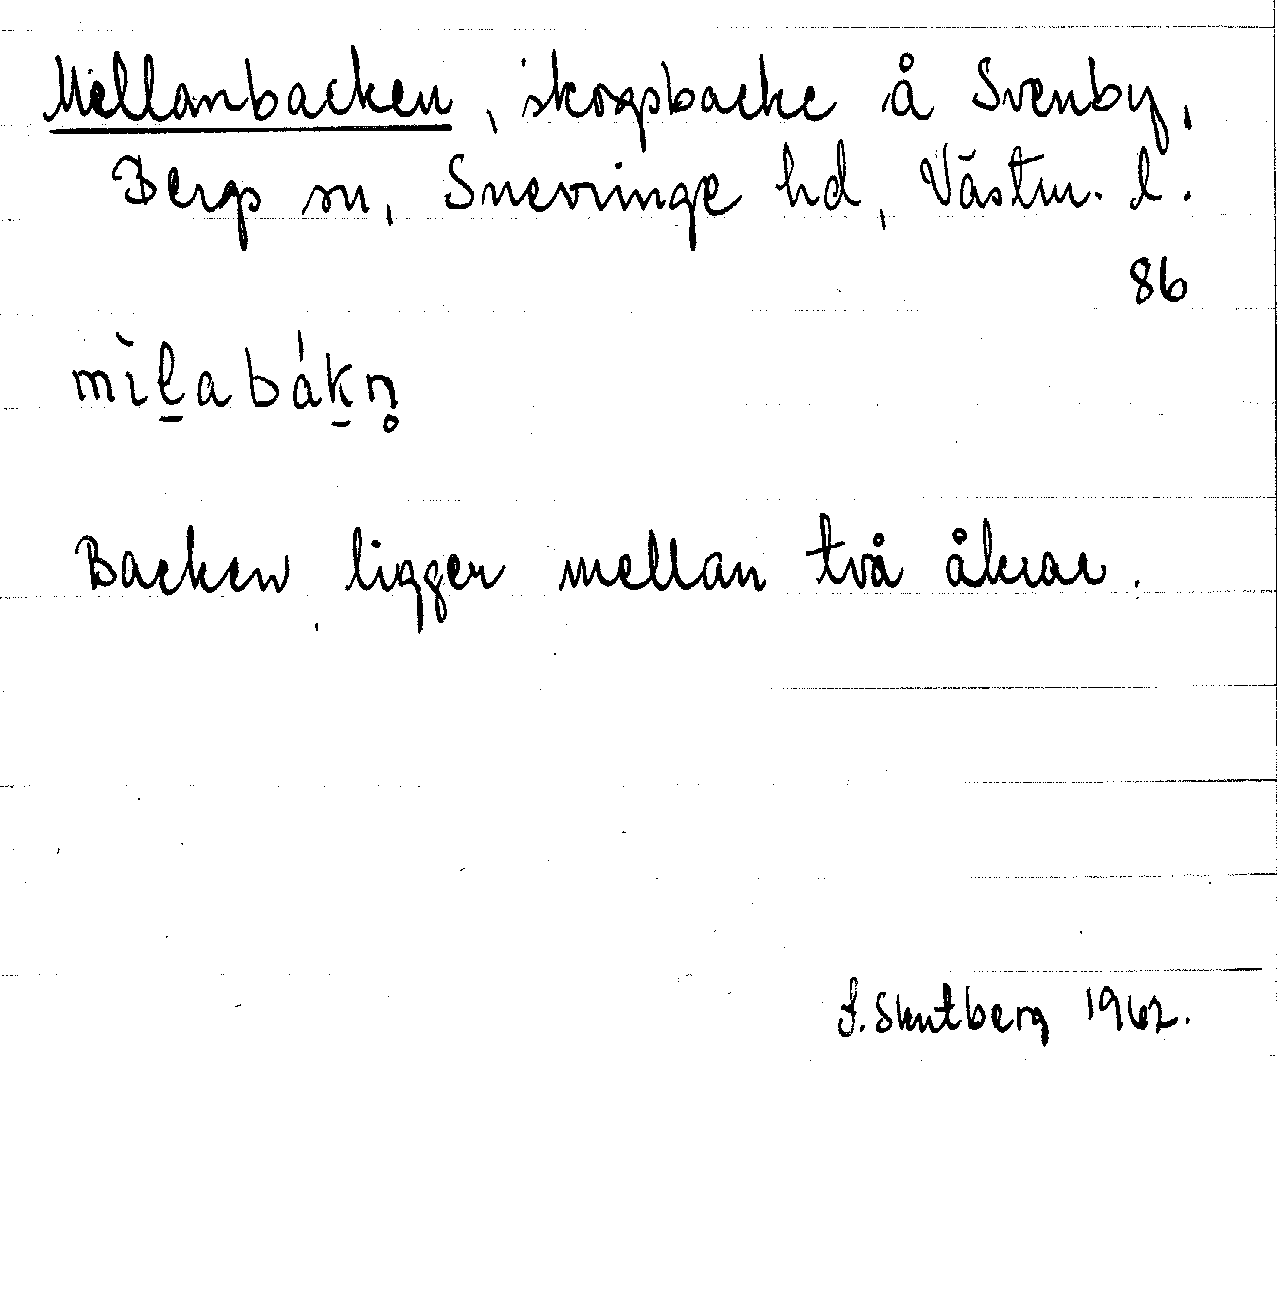 Mellanbacken, skogsbacke å Svenby,
Bergs sn, Snevringe hd, Västm. l.
86
mìl̠abák̠n̥
Backen ligger mellan två åkrar.
S. Skutberg 1962.